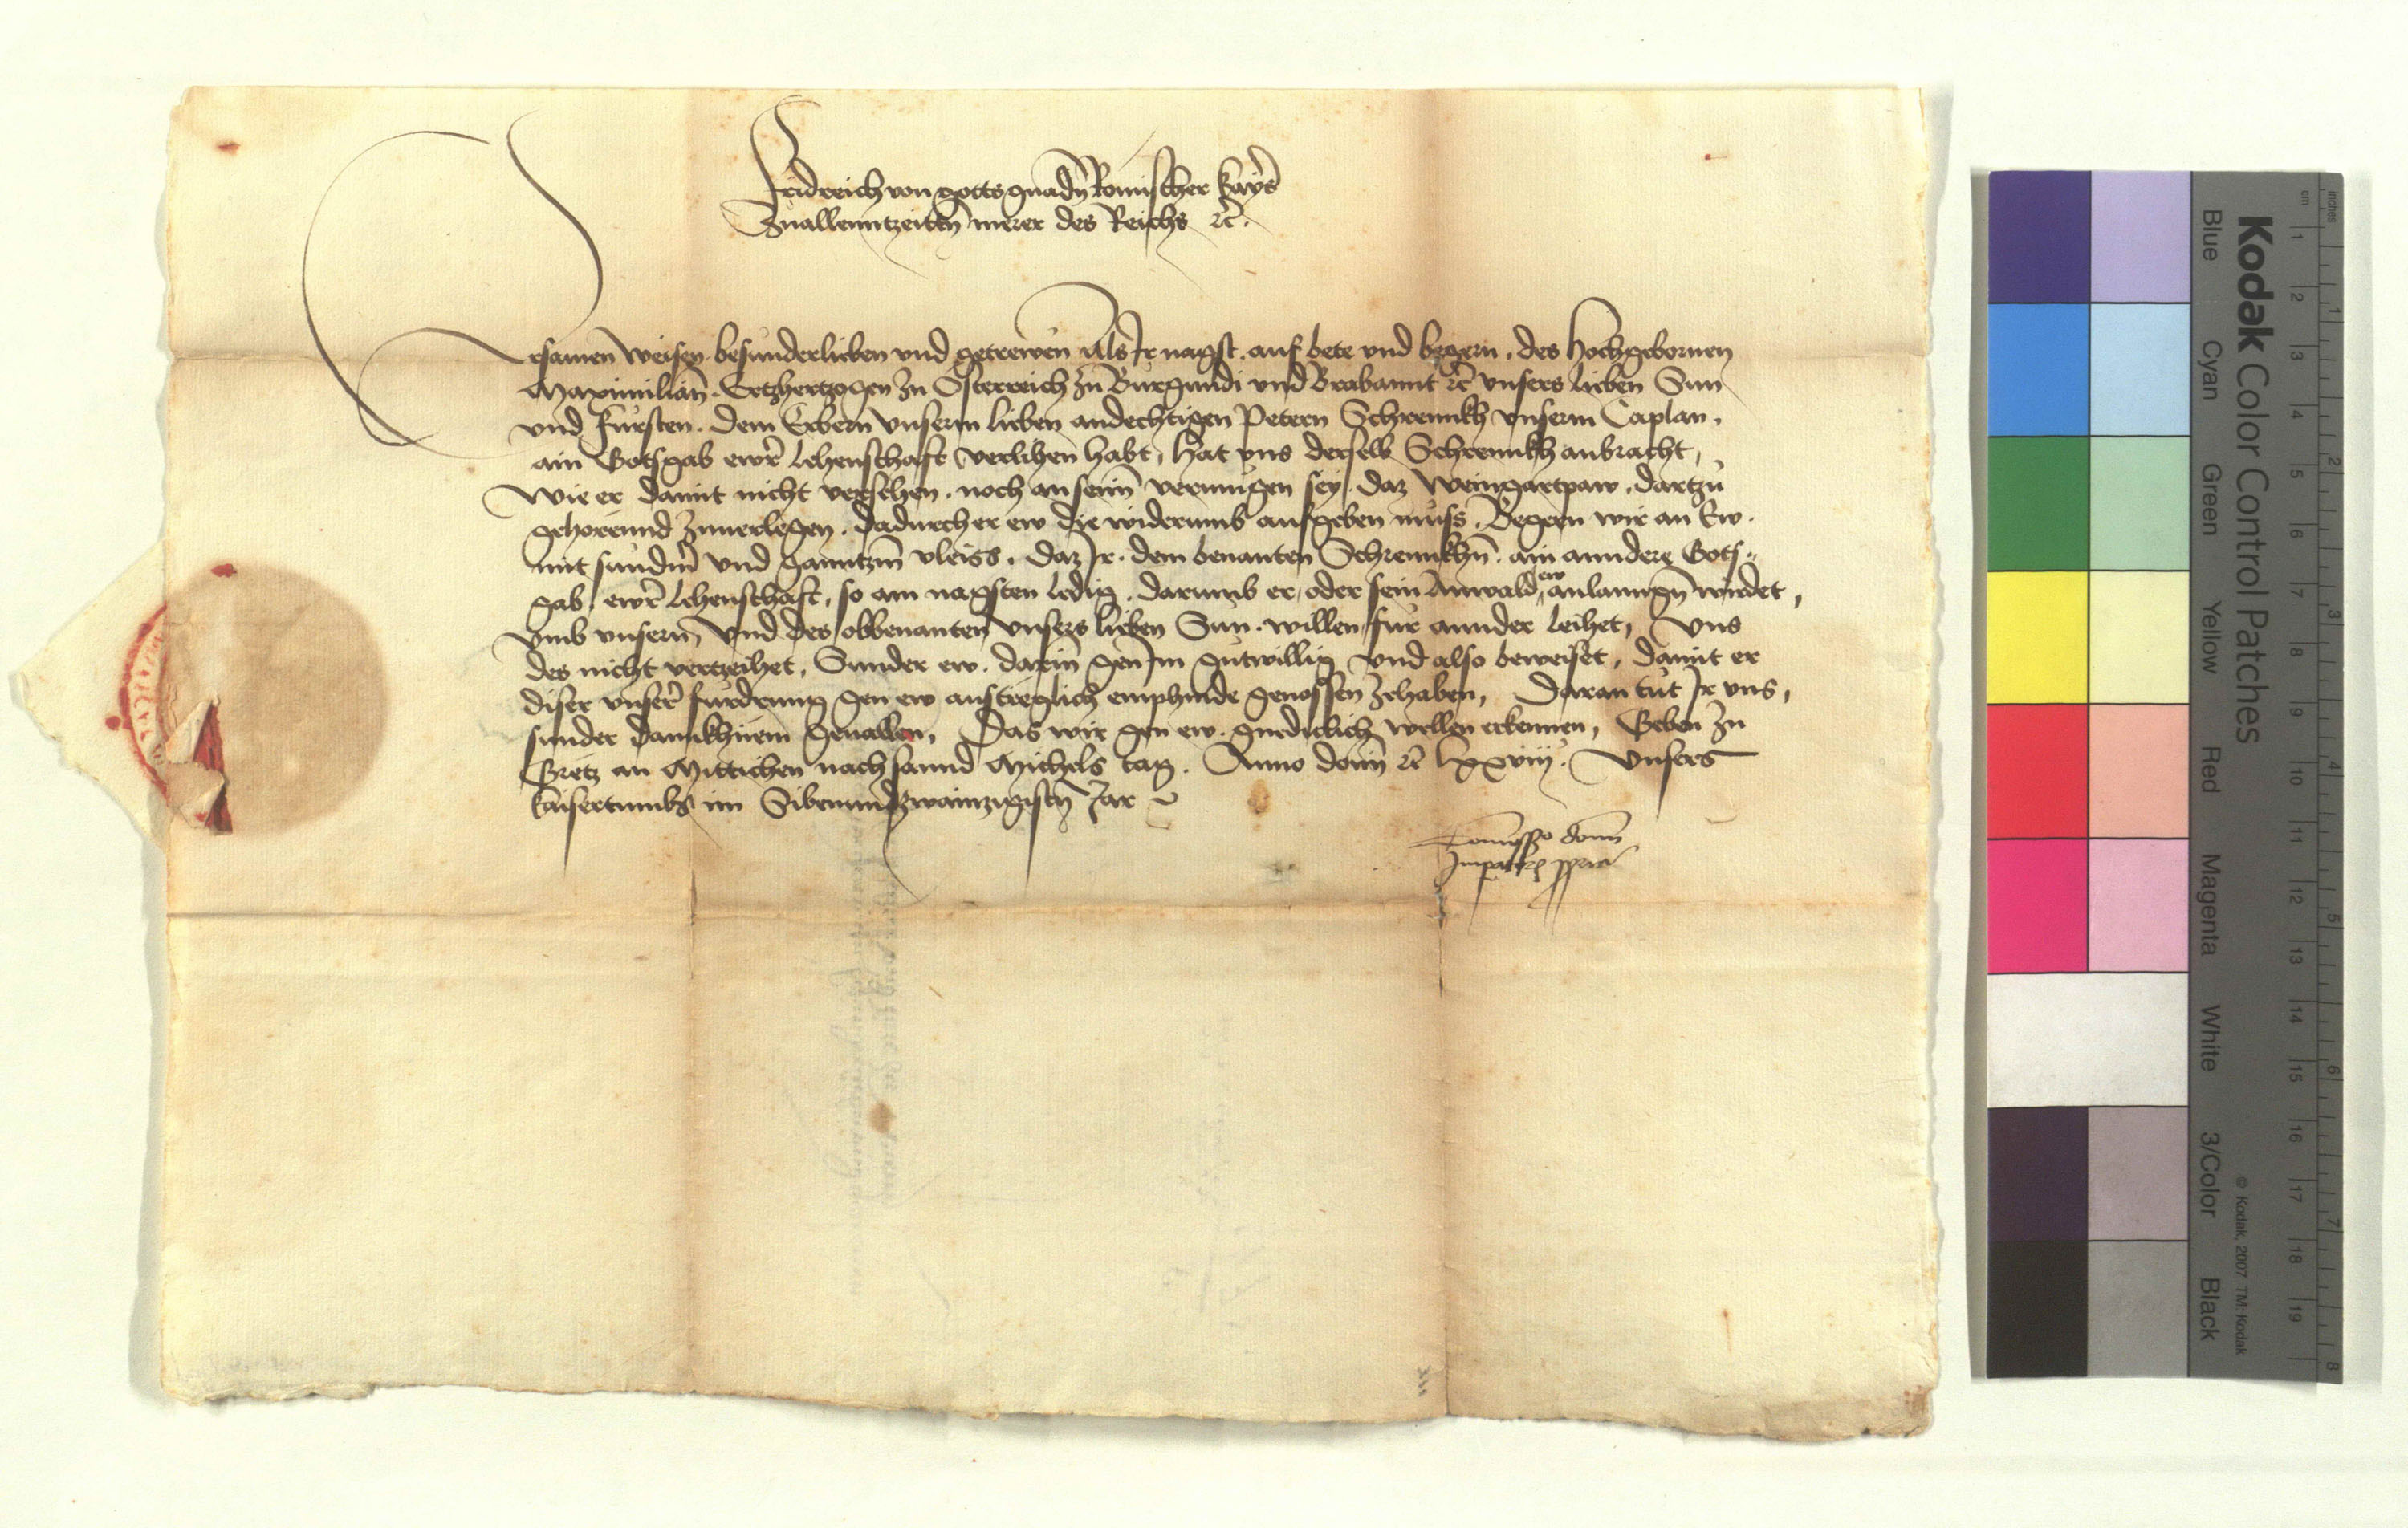 Fridreich von gotts gnadn Romischer kayser
Zuallenntzeittn merer des Reichs etc.
Ersamen weisen besunderlieben und getrewen Als Ir nagst auf bete und begern, des hochgebornen
Maximilian Ertzhertzogen zu Österreich zu Burgundi und Brabannt etc unsers lieben Sun
und Fürsten. dem Erbern unserm lieben andechtigen Petern Schrennkh unserm Caplan,
ain Gotsgab ewr lehenschaft verlihen habt, hat uns derselb Schrennkh anbracht,
Wie er damit nicht versehen, noch an seinn vermugen sey, daz Weingartpaw, dartzu
gehorennd zuuerlegen, dadurch er ew die widerumb aufgeben muss, Begern wir an Ew.
mit sundrm und ganntzm vleiss, daz Ir dem benanten Schrennkhn ain anndere Gots-
gab, ewr lehenschaft, so am nagsten ledig, darumb er, oder sein Anwald ew anlanngn wirdet,
umb unsern und des obbenanten unsers lieben Sun willen für annder leihet, Uns
des nicht vertzeihet, Sunder ew. darin gen Im gutwillig und also beweiset, damit er
diser unser furdrung gen ew austreglich emphinde genossen zehaben, Daran tut Ir uns,
sunder dannkhnem geuallen, Das wir gen ew. gnediclich wellen erkennen, Geben zu
Gretz an Mittichen nach sannd Michels tag. Anno domini etc lxxviij. Unsers
kaisertumbs im Sibenundzwainzigistn Jar
Commissio domini
Imperatoris propria
Kodak Color Control Patches
Blue Cyan Green Yellow Red Magenta White 3/Color Black
© Kodak, 2007 TM: Kodak
inches 1 2 3 4 5 6 7 8
cm 1 2 3 4 5 6 7 8 9 10 11 12 13 14 15 16 17 18 19